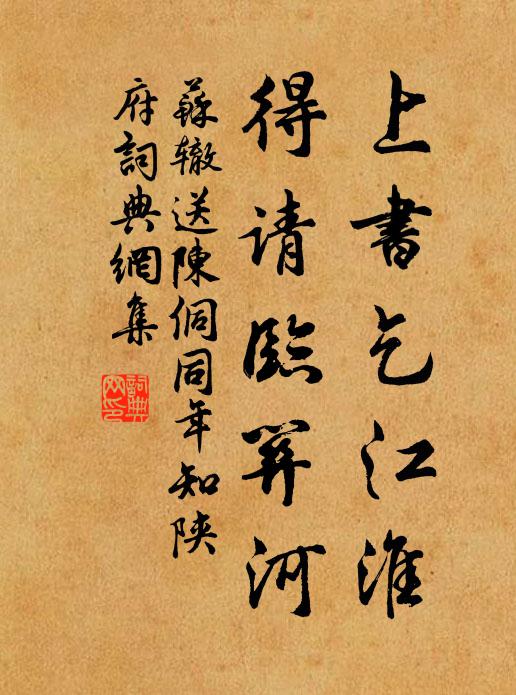 上書乞江淮
得请臨關河
蘇辙送陳侗同年知陝
府詞典網集
詞典
网印